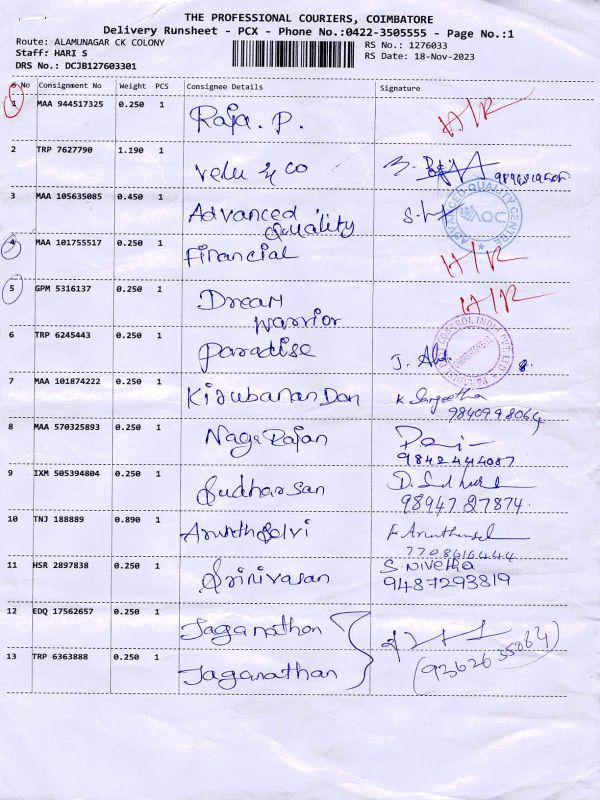 THE PROFESSIONAL COURIERS, COIMBATORE
Delivery Runsheet - PCX - Phone No.:0422-3505555 - Page No.:1
Route: ALAMUNAGAR CK COLONY
Staff: HARI S
DRS No.: DCJB127603301
RS No.: 1276033
RS Date: 18-Nov-2023
S No Consignment No Weight PCS Consignee Details Signature
1 MAA 944517325 0.250 1 Raja. P. H/R
2 TRP 7627790 1.190 1 Velu & CO
3 MAA 105635085 0.450 1 Advanced Quality
ADVANCED QUALITY CENTRE
AQC
4 MAA 101755517 0.250 1 Financial H/R
5 GPM 5316137 0.250 1 Dream Warrior H/R
6 TRP 6245443 0.250 1 Paradise
7 MAA 101874222 0.250 1 Kirubanan Dan K Sangeetha
9840998064
8 MAA 570325893 0.250 1 Naga Rajan
9842444087
9 IXM 505394804 0.250 1 Sudharsan
98947 27874
10 TNJ 188889 0.890 1 Arunthselvi
7708616444
11 HSR 2897838 0.250 1 Srinivasan S Nivetha
9487293819
12 EDQ 17562657 0.250 1 Jaganathan
(93626 35064)
13 TRP 6363888 0.250 1 Jaganathan